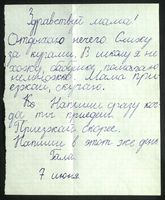 Здравствуй мама!
Отдыхаю нечего Слежу
за курами. В школу я не
хожу, бабушке помогаю
немножко Мама при
езжай, скучаю.
Напиши сразу ког
да ты приедеш.
Приезжай скорее.
Напиши в этот же день
7 июня